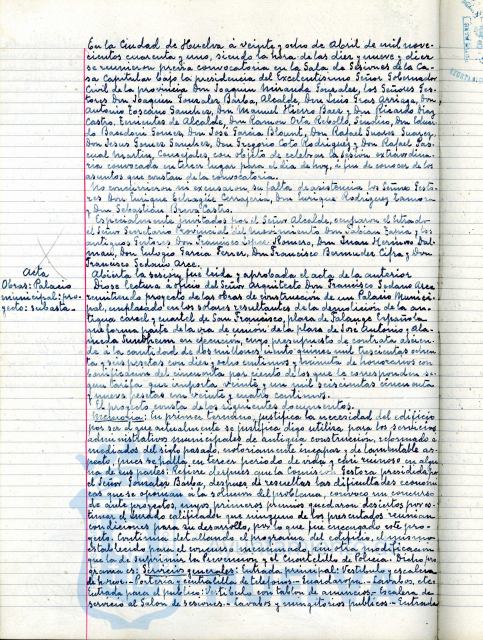 En la Ciudad de Huelva á veinte y ocho de Abril de mil nove-
cientos cuarenta y uno, siendo la hora de las diez y nueve y diez
se reunieron previa convocatoria en la Sala de Sesiones de la Ca-
sa Capitular bajo la presidencia del Excelentísimo Señor Gobernador
Civil de la provincia Don Joaquin Miranda Gonzalez, los Señores Ges-
tores Don Joaquin Gonzalez Barba, Alcalde, Don Luis Gras Arriaga, Don
Antonio Toscano Sanchez, Don Manuel Hierro Baez y Don Ricardo
Castro, Tenientes de Alcalde, Don Ramon Orta Rebollo, Síndico, Don
Gomez, Don José Garcia Blount, Don Rafael Suarez Suarez,
Don Jesus Gomez Sanchez, Don Gregorio Coto Rodriguez y Don Rafael Pas-
cual Martin, Consejales, con objeto de celebrar la sesion extraordina-
ria convocada en tercer lugar para el dia de hoy, á fin de conocer de los
asuntos que constan de la convocatoria.
No concurrieron ni excusaron su falta de asistencia los Señores Gesto-
res Don Enrique Don Enrique Rodriguez
y Don Sebastian Castro.
Especialmente invitados por el Señor Alcalde, ocuparon el Estrado
el Señor Secretario Provincial del Movimiento Don Fabian y los
antiguos Gestores Don Francisco Romero, Don Juan
Don Eulogio Garcia Ferrer, Don Francisco Bermudez y Don
Francisco Sedano Arce.
Abierta la sesion, fue leida y aprobada el acta de la anterior
Acta
Obras: Palacio
municipal: pro-
yecto: subasta
Diose lectura á oficio del Señor Arquitecto Don Francisco Sedano Arce
remitiendo proyecto de las obras de construccion de un Palacio Munici-
pal, emplazado en los solares resultantes de la demolicion de la an-
tigua carcel y cuartel de San Francisco, plaza de Falange Española
que forma parte de la via de union de la plaza de José Antonio y Ala-
meda Sundheim en ejecucion, cuyo presupuesto de contrata ascien-
de á la cantidad de dos millones ciento quince mil trescientas
y seis pesetas con diez y ocho centimos, y minuta de honorarios con
bonificacion del cincuenta por ciento de los que le corresponden se-
gun tarifa que importa veinte y un mil seiscientas cincuenta
y nueve pesetas con veinte y cuatro centimos.
El proyecto consta de los siguientes documentos.
Memoria: En primer termino, justifica la necesidad del edificio
por ser el que actualmente se utiliza para los servicios
administrativos municipales de antigua construccion, reformado á
mediados del siglo pasado, notoriamente incapaz y de lamentable as-
pecto, pues se halla en tercer periodo de vida y casi ruinoso en algu-
na de sus partes: Refiere despues que la Comision Gestora presidida por
el Señor Gonzalez Barba, despues de resueltas las dificultades economi-
cas que se oponian á la solucion del problema, convocó un concurso
de ante proyectos, cuyos primeros premios quedaron desiertos por es-
timar el Jurado calificador que ninguno de los presentados reunian
condiciones para su desarrollo, por lo que fue encargado este pro-
yecto. Continua detallando el programa del edificio, el mismo
establecido para el concurso mencionado, sin otra modificacion
que la de suprimir la y el Cuartelillo de Policia. Dicho pro-
grama es: Servicios generales: Entrada principal: Vestibulo y escalera
de Porteria y centralilla de telefonos- Guardaropa- Lavabos, etc.
Entrada para el publico: Vestibulo con tablon de anuncios- Escalera de
servicio al Salon de sesiones- Lavabos y mingitorios publicos- Entrada